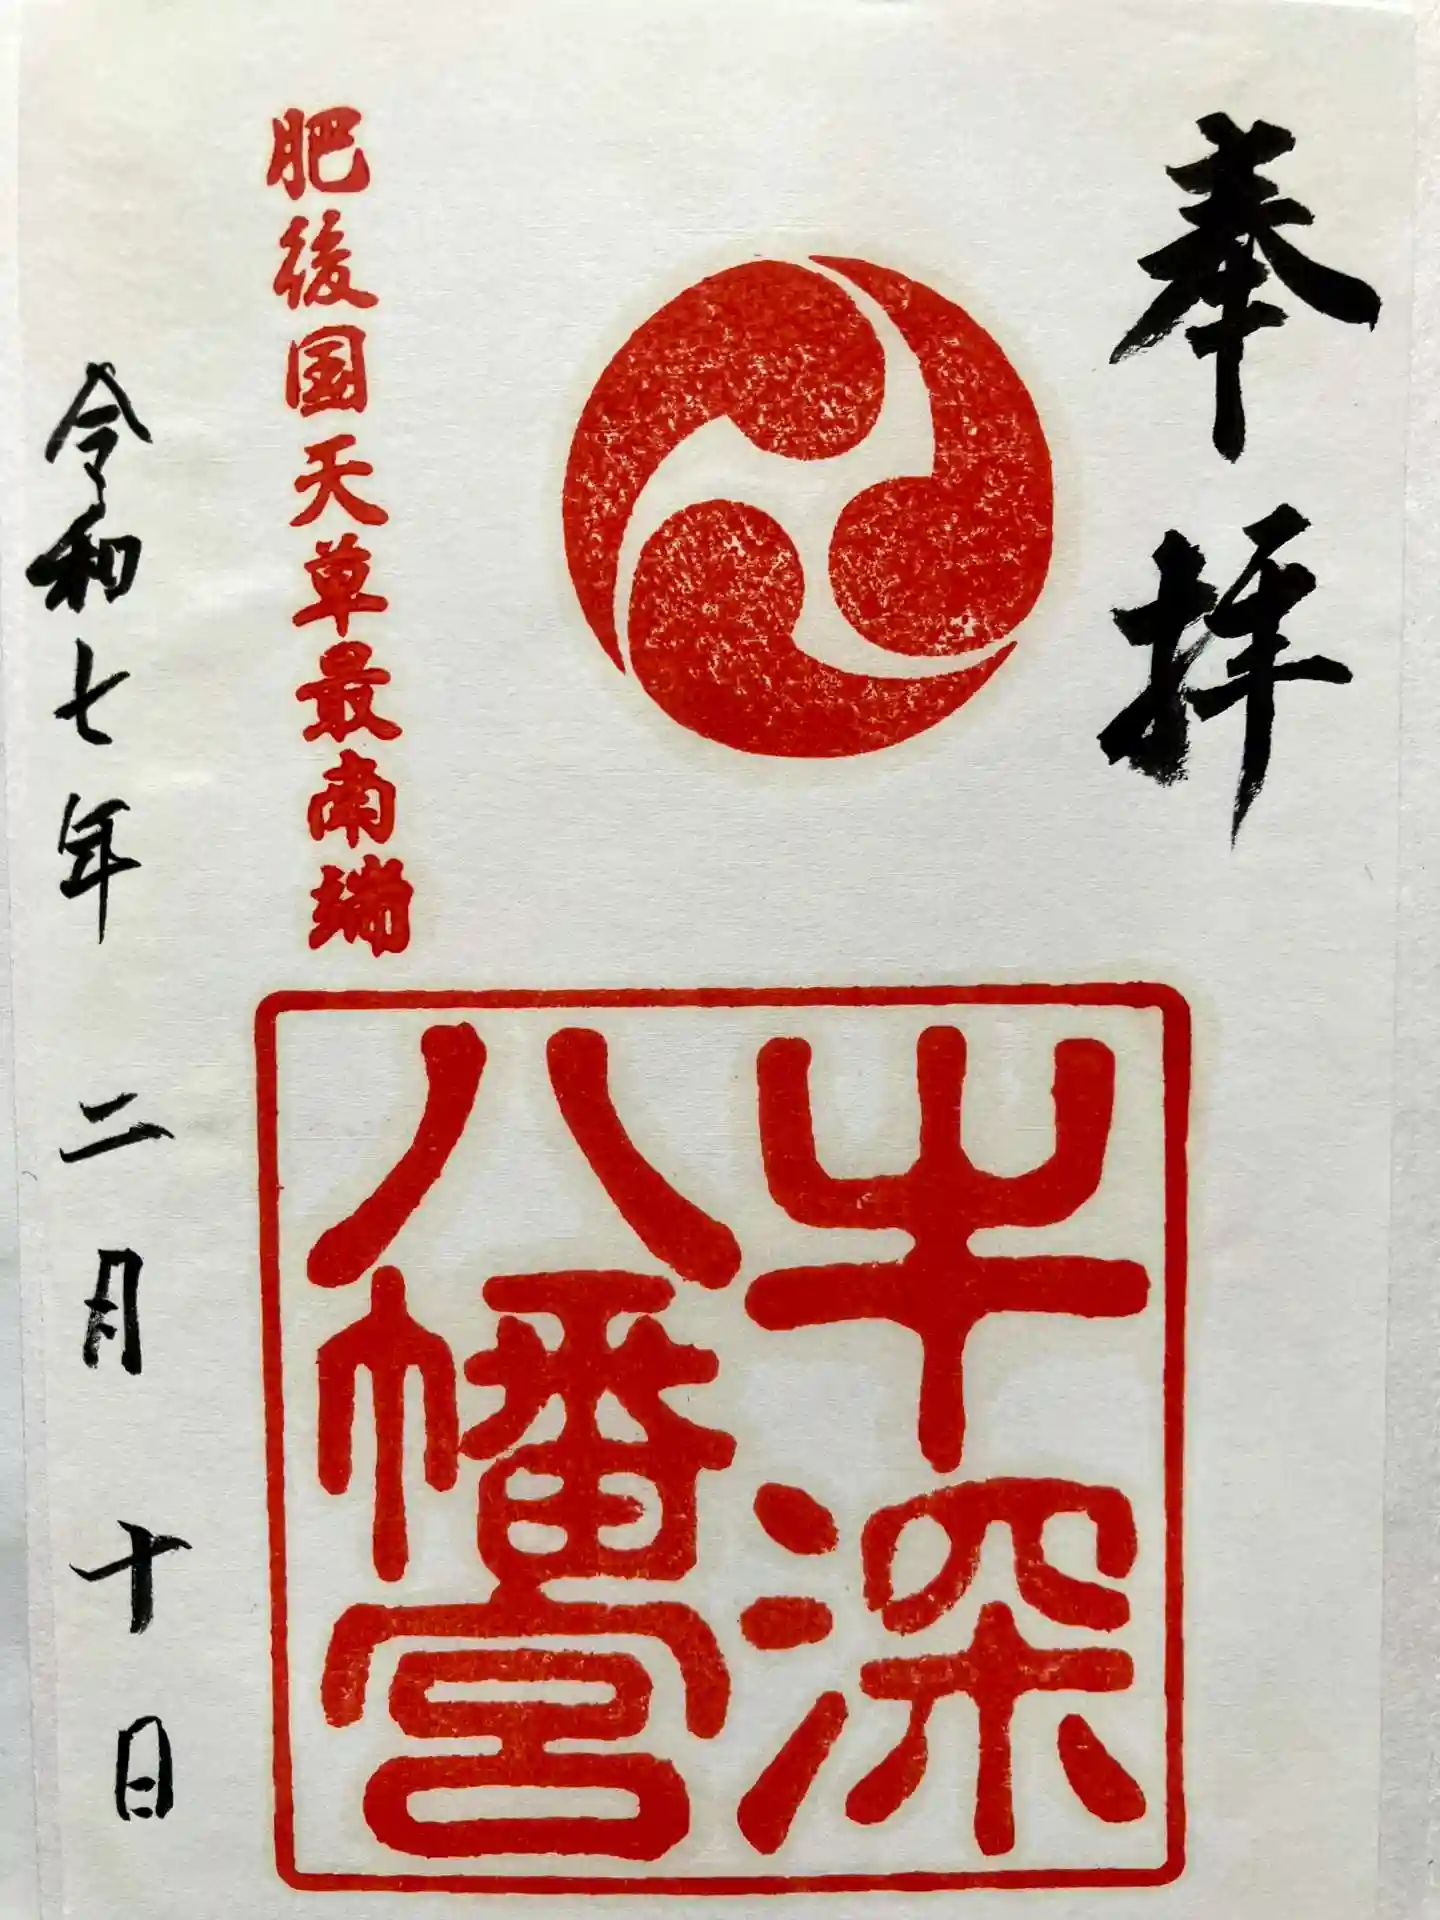 奉拝
肥後国天草最南端
牛深
八幡宮
令和七年二月十日